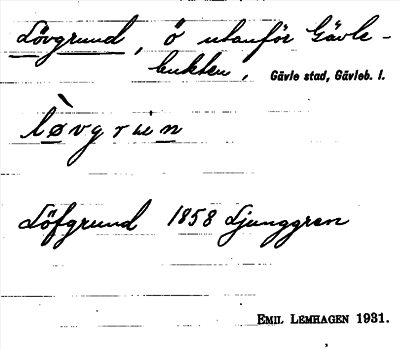 Lövgrund, ö utanför Gävle-
bukten, Gävle stad, Gävleb. l.
Löfgrund 1858 Ljunggren
EMIL LEMHAGEN 1931.